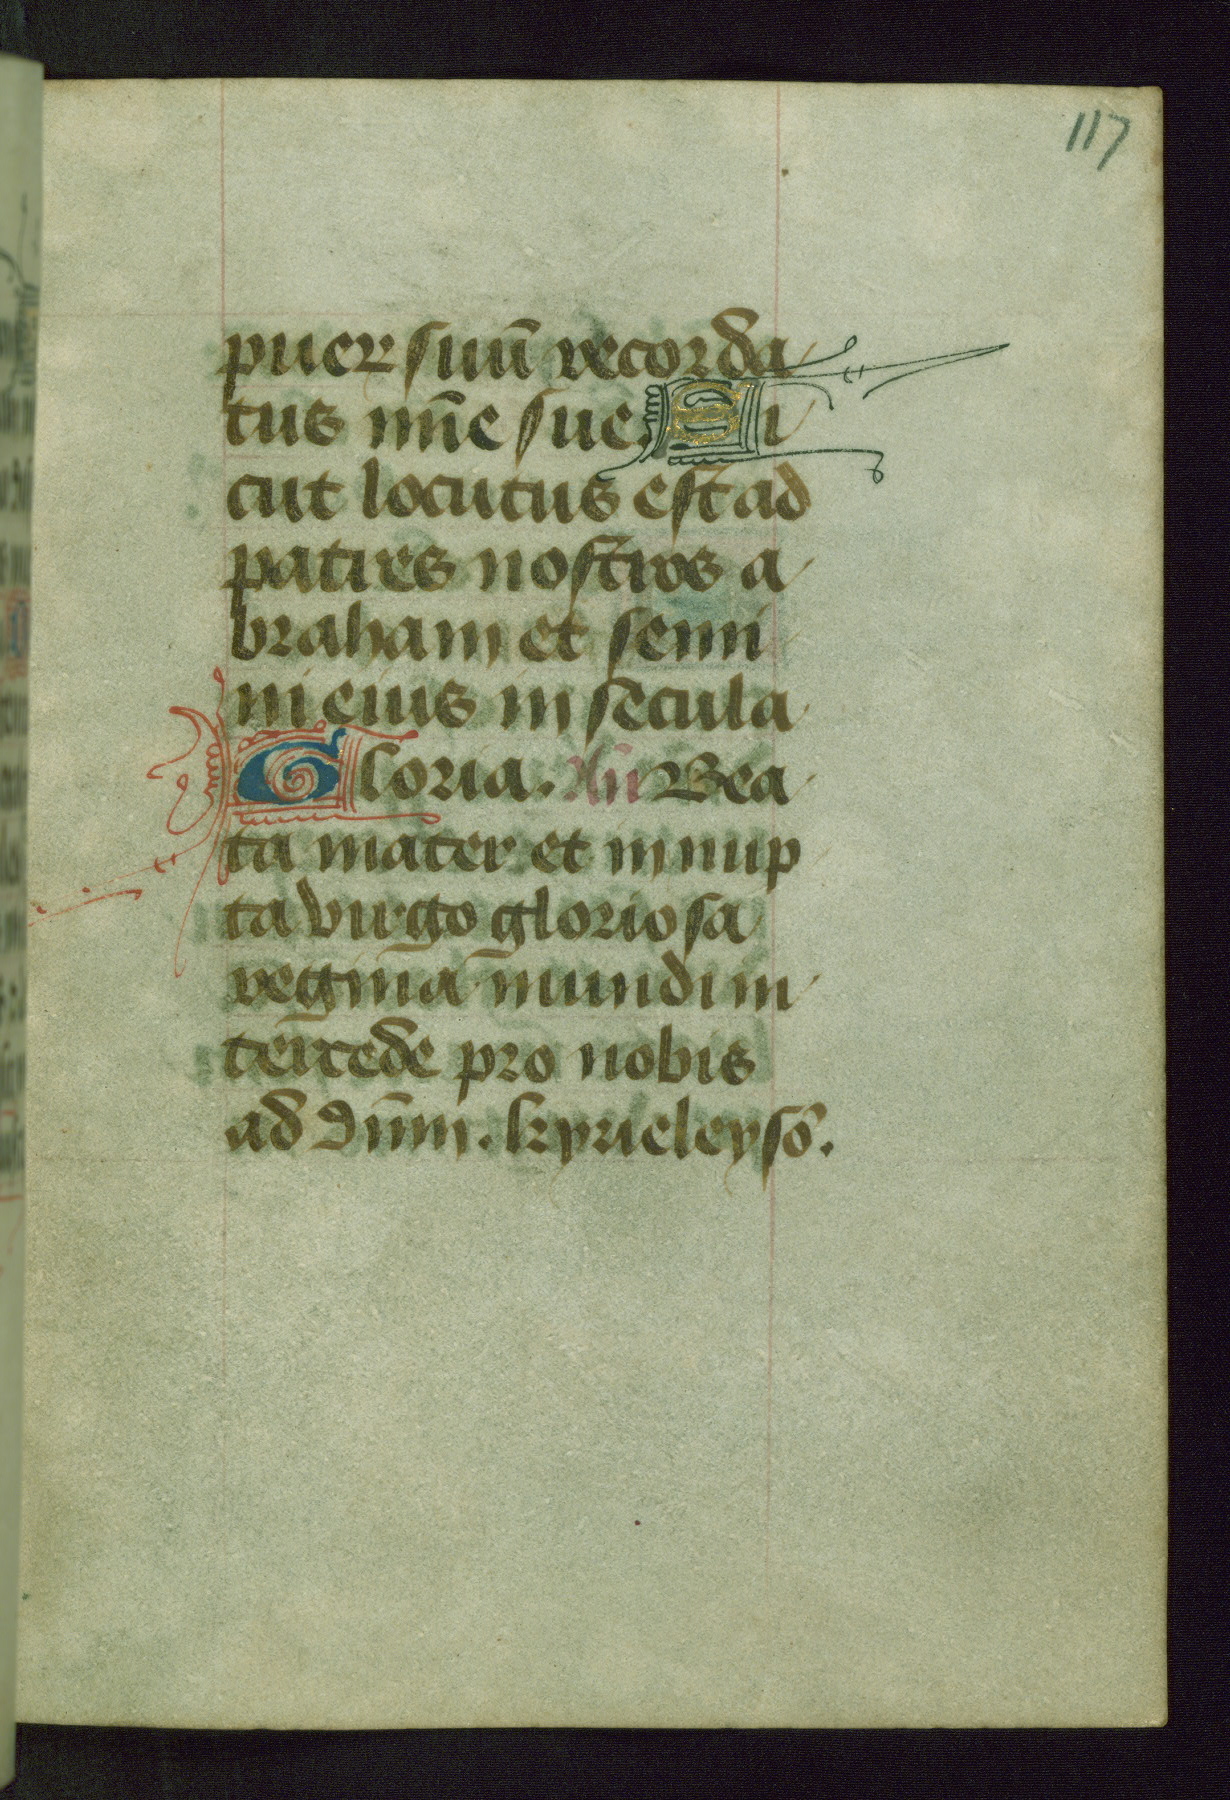 117
puer suū recorda
tus mīe sue. Si
cut locutus est ad
patres nostros a
braham et semi
ni eius in secula
Gloria. Añ Bea
ta mater et innup
ta virgo gloriosa
regina mundi in
tercede pro nobis
ad dñm. kyrieleysō.